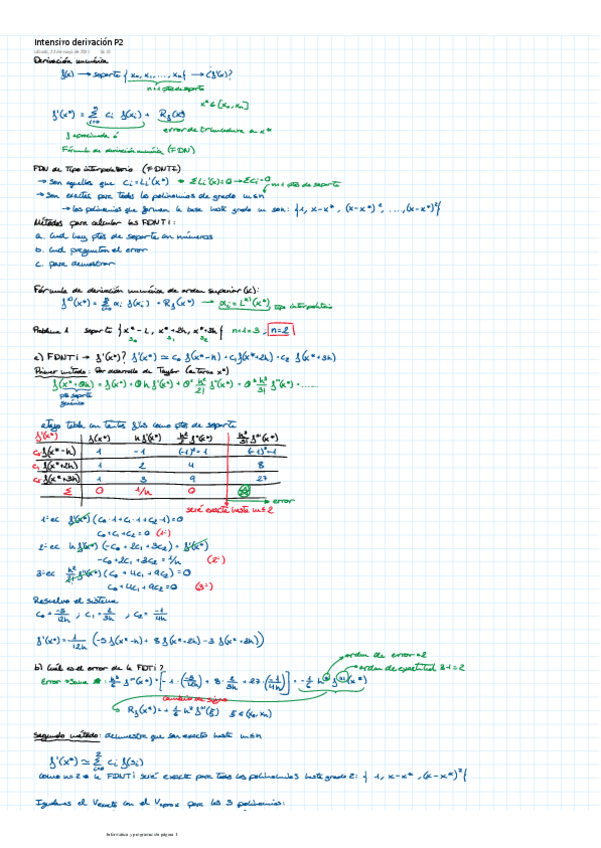 Intensivo derivación P2
Derivación numérica
f(x) → soporte {x₀, x₁, ..., xₙ} → ¿f'(x)?
n+1 ptos de soporte
x* ∈ [x₀, xₙ]
f'(x*) = Σ cᵢ f(xᵢ) + R_f(x*)
f aproximada
error de truncadura en x*
Fórmula de derivación numérica (FDN)
FDN de Tipo interpolatorio (FDNTI)
→ Son aquellos que cᵢ = Lᵢ'(x*) → ΣLᵢ'(x) = 0 → Σcᵢ = 0
n+1 ptos de soporte
→ Son exactas para todos los polinomios de grado m≤n
→ los polinomios que forman la base hasta grado m son: {1, x-x*, (x-x*)², ..., (x-x*)ⁿ}
Métodos para calcular las FDNTI:
a. cual hay ptos de soporte en números
b. cual preguntan el error
c. para demostrar
Fórmula de derivación numérica de orden superior (k):
f^(k)(x*) = Σ αᵢ f(xᵢ) + R_f(x*) → αᵢ = L^(k)(x*) tipo interpolatorio
Problema 1 soporte {x*-h, x*+2h, x*+3h} n+1=3, n=2
a) FDNTI → f'(x*)? f'(x*) ≃ c₀ f(x*-h) + c₁ f(x*+2h) + c₂ f(x*+3h)
Primer método: Por desarrollo de Taylor (entorno x*)
f(x*+θh) = f(x*) + θh f'(x*) + θ² h²/2! f''(x*) + θ³ h³/3! f'''(x*) + ......
pto soporte genérico
f'(x*) f(x*) h f'(x*) h²/2 f''(x*) h³/3! f'''(x*)
c₀ f(x*-h) 1 -1 (-1)²=1 (-1)³=-1
c₁ f(x*+2h) 1 2 4 8
c₂ f(x*+3h) 1 3 9 27
Σ 0 1/h 0
→ error
será exacta hasta m≤2
1ª ec f(x*)(c₀·1+c₁·1+c₂·1)=0
c₀+c₁+c₂=0 (1ª)
2ª ec h f'(x*)(-c₀+2c₁+3c₂)=f'(x*)
-c₀+2c₁+3c₂=1/h (2ª)
3ª ec h²/2! f''(x*)(c₀+4c₁+9c₂)=0
c₀+4c₁+9c₂=0 (3ª)
Resuelvo el sistema
c₀=-5/12h ; c₁=2/3h ; c₂=-1/4h
f'(x*)=1/12h (-5 f(x*-h) + 8 f(x*+2h) - 3 f(x*+3h))
orden de error=2
orden de exactitud 3-1=2
b) Cuál es el error de la FDTI?
Error → Suma : h³/6 f'''(x*) = [-1·(-5/12h) + 8·2/3h + 27·(-1/4h)] = -1/6 h² f'''(x*)
cambio de signo
R_f(x*) = +1/6 h² f'''(ξ) ξ∈(x₀,xₙ)
Segundo método: demuestra que son exactos hasta m≤n
f'(x*) ≃ Σ cᵢ f(xᵢ)
como n=2 → la FDNTI será exacta para todos los polinomios hasta grado 2: {1, x-x*, (x-x*)²}
Igualamos el Vexacto con el Vaprox para los 3 polinomios:
Informática y programación página 1